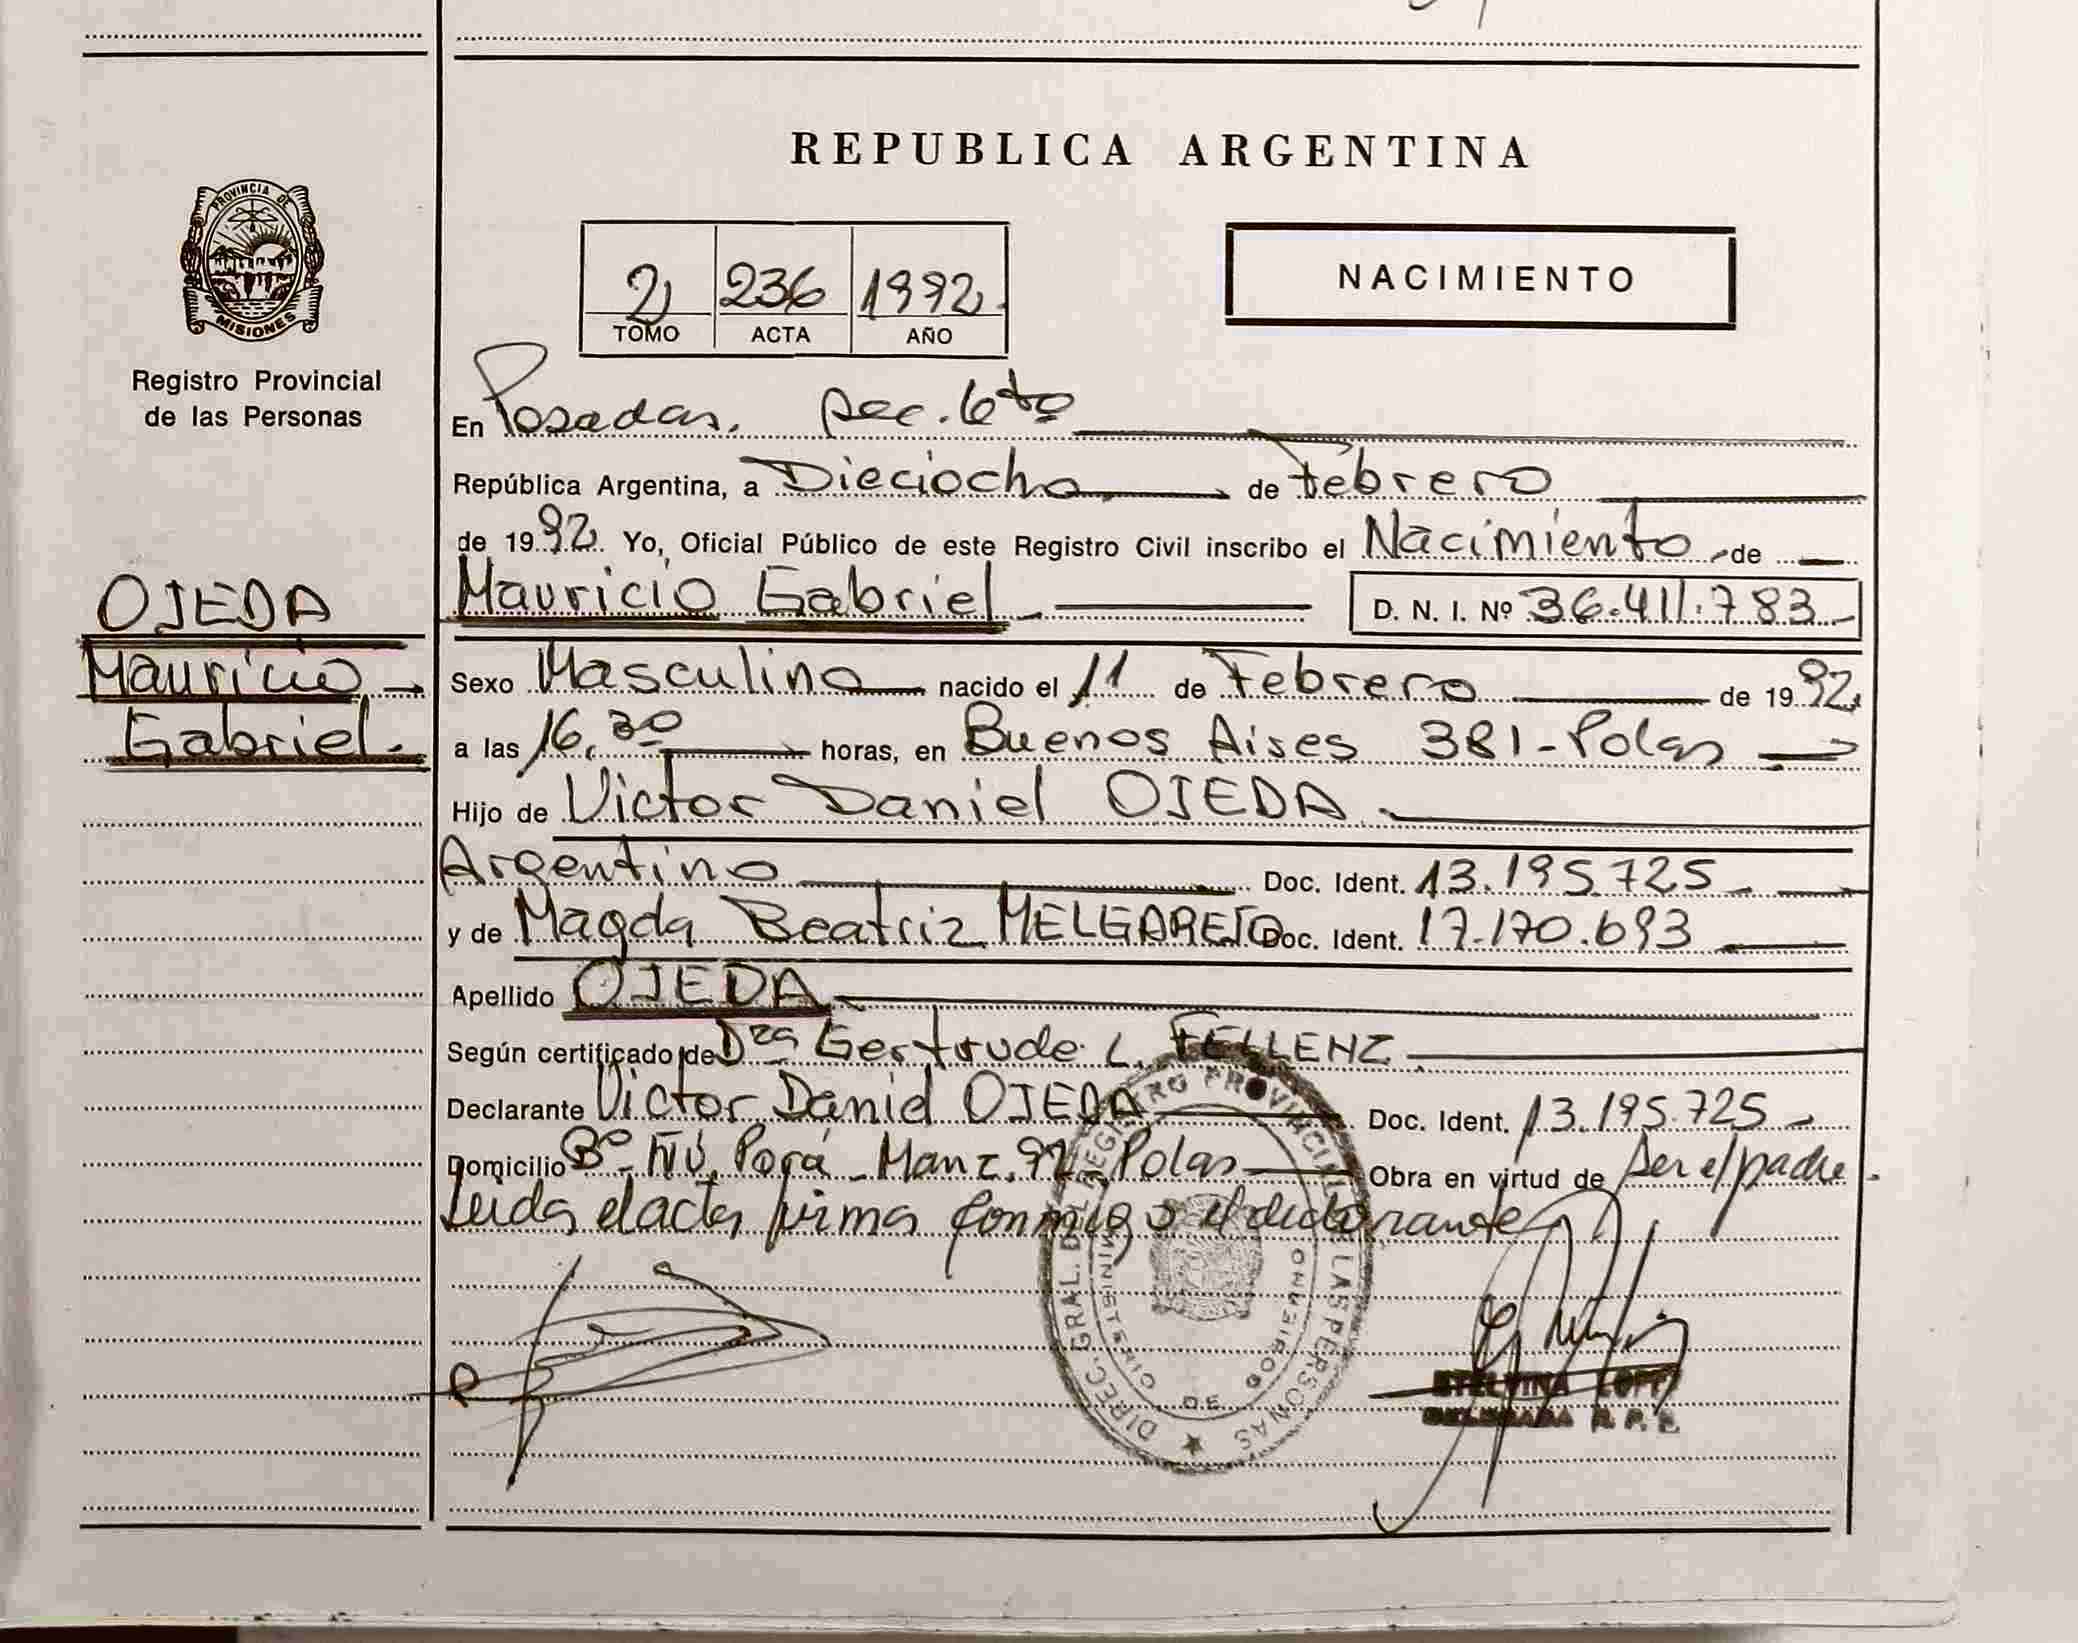 REPUBLICA ARGENTINA
PROVINCIA DE
MISIONES
Registro Provincial
de las Personas
NACIMIENTO
2 236 1992
TOMO ACTA AÑO
En Posadas. sec. 6ta
República Argentina, a Dieciocho de Febrero
de 1992. Yo, Oficial Público de este Registro Civil inscribo el Nacimiento de
OJEDA
Mauricio
Gabriel.
Mauricio Gabriel D. N. I. Nº 36.411.783
Sexo Masculino nacido el 11 de Febrero de 1992
a las 16.30 horas, en Buenos Aises 381 - Pdas
Hijo de Victor Daniel OJEDA.
Argentino Doc. Ident. 13.195.725
y de Magda Beatriz MELGAREJO Doc. Ident. 17.170.693
Apellido OJEDA
Según certificado de Dra Gertrude L. FELLENZ
Declarante Victor Daniel OJEDA Doc. Ident. 13.195.725
Domicilio Bº Ñú Porá - Manz. 92 - Pdas Obra en virtud de ser el padre.
Leida el acta firma conmigo el declarante
DIREC. GRAL. DEL REGISTRO PROVINCIAL DE LAS PERSONAS
MINISTERIO DE GOBIERNO
R. P. P.